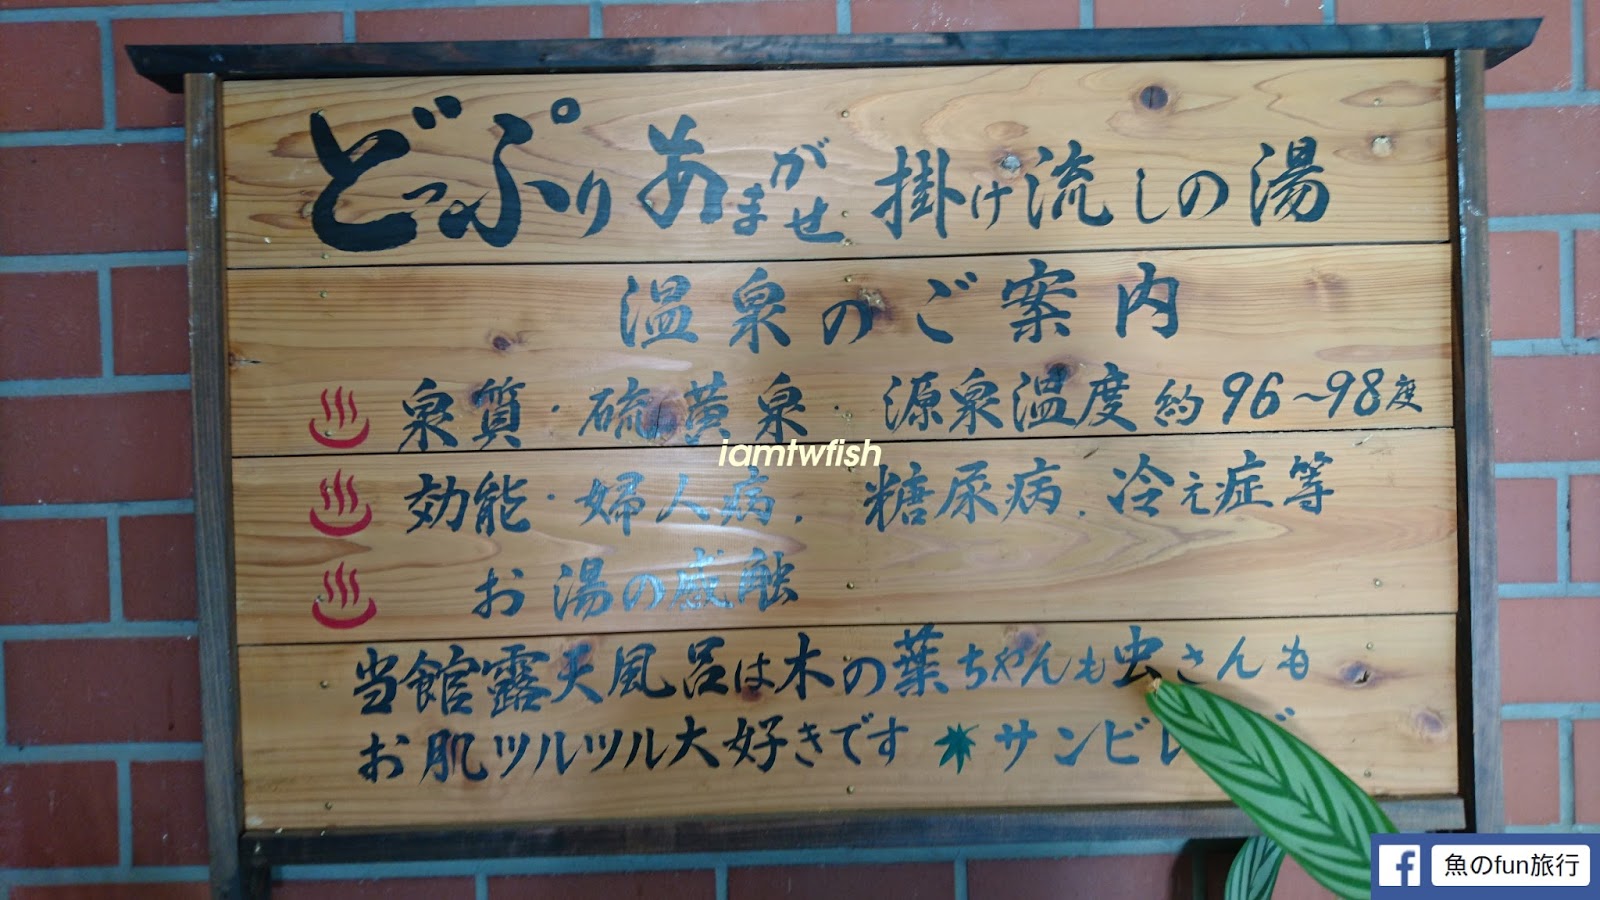 どっぷりあまがせ掛け流しの湯
温泉のご案内
泉質・硫黄泉・源泉温度約96~98度
効能・婦人病、糖尿病、冷え症等
お湯の感触
当館露天風呂は木の葉ちゃんも虫さんも
お肌ツルツル大好きです サンビレ
iamtwfish
魚のfun旅行